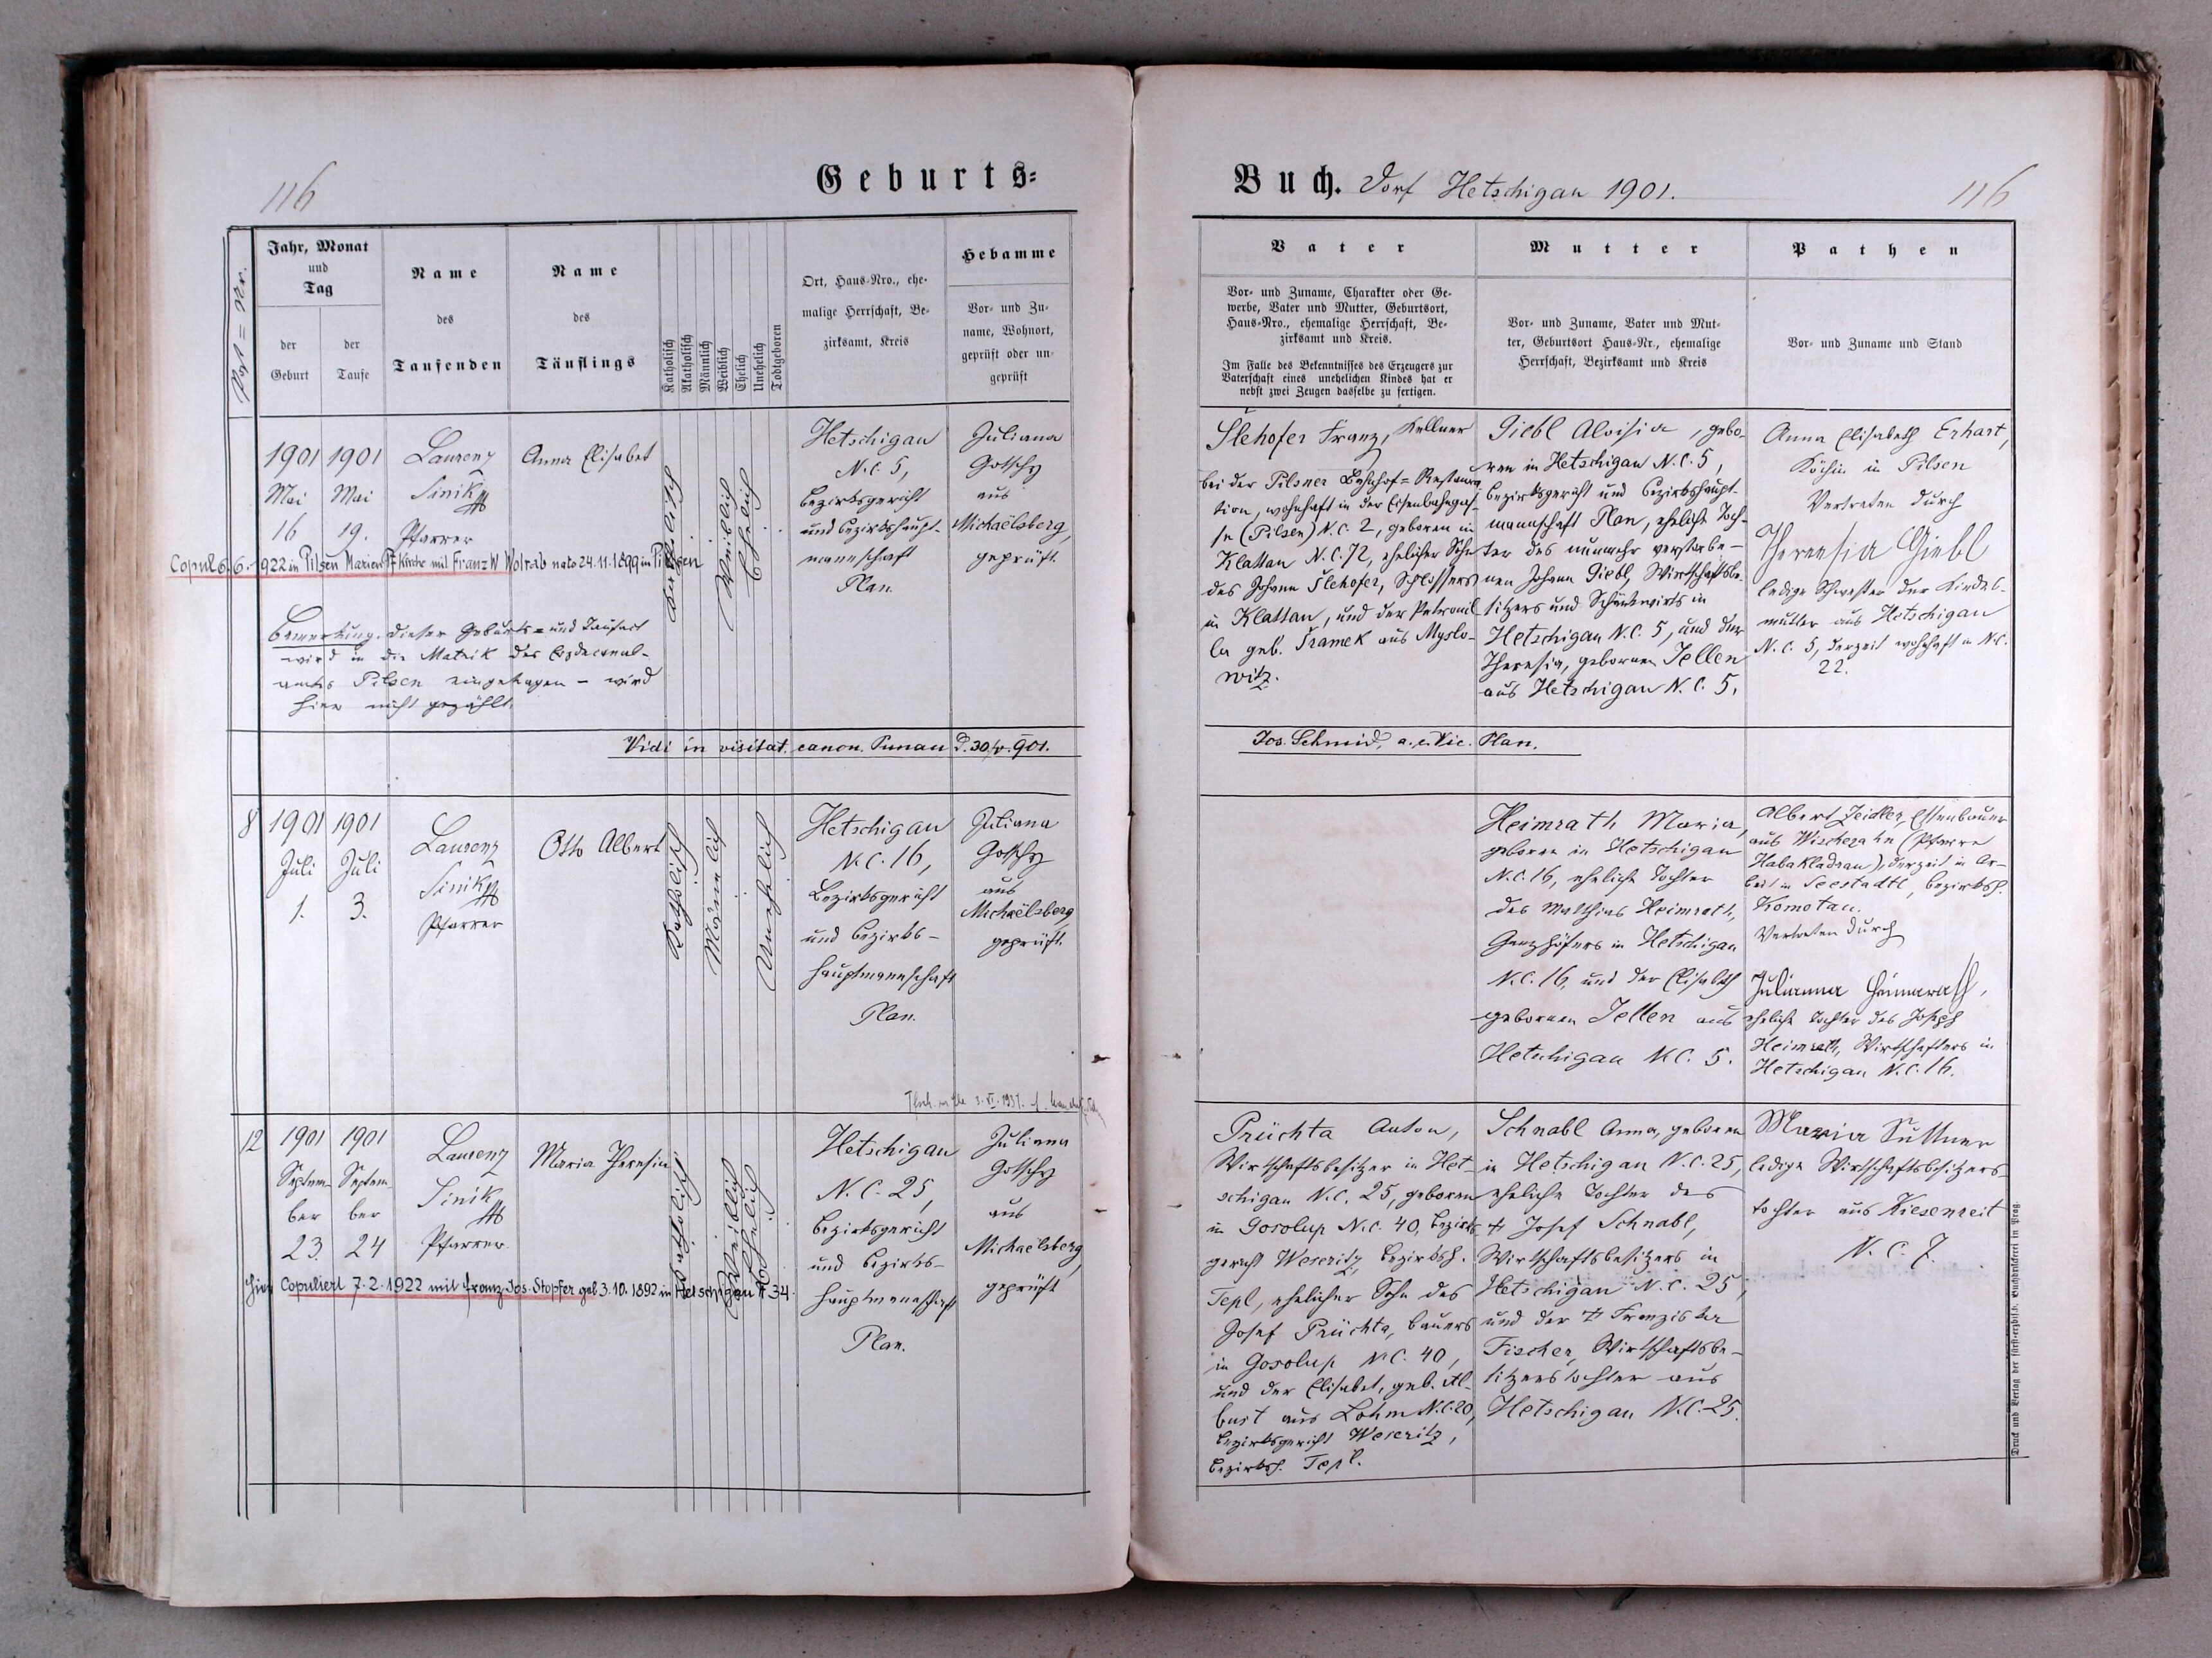 116
Geburts-
Post-Nr.
Jahr, Monat
und
Tag
der
Geburt
der
Taufe
Name
des
Taufenden
Name
des
Täuflings
Katholisch
Akatholisch
Männlich
Weiblich
Ehelich
Unehelich
Todtgeboren
Ort, Haus-Nro., ehe-
malige Herrschaft, Be-
zirksamt, Kreis
Hebamme
Vor- und Zu-
name, Wohnort,
geprüft oder un-
geprüft
1901
Mai
16
1901
Mai
19.
Laurenz
Sinik
Pfarrer
Anna Elisabet
Katholisch
Weiblich
Ehelich
Hetschigau
N.C. 5,
Bezirksgericht
und Bezirkshaupt-
mannschaft
Plan.
Juliana
Gotschy
aus
Michaëlsberg,
geprüft.
Copul 6. 6. 1922 in Pilsen Marien Pf. Kirche mit Franz W Wolrab nato 24.11.1899 in Pilsen
Bemerkung. Dieser Geburts- und Taufact
wird in die Matrik des Erzdecanal-
amtes Pilsen eingetragen – wird
hier nicht gezählt.
Vidi in visitat. canon. Punau d. 30/V. 901.
8
1901
Juli
1.
1901
Juli
3.
Laurenz
Sinik
Pfarrer
Otto Albert
Katholisch
Männlich
Unehelich
Hetschigau
N.C. 16,
Bezirksgericht
und Bezirks-
hauptmannschaft
Plan.
Juliana
Gotschy
aus
Michaëlsberg,
geprüft.
3. VI. 1937.
12
1901
Septem-
ber
23.
1901
Septem-
ber
24
Laurenz
Sinik
Pfarrer.
Maria Theresia
Katholisch
Weiblich
Ehelich
Hetschigau
N.C. 25,
Bezirksgericht
und Bezirks-
hauptmannschaft
Plan.
Juliana
Gotschy
aus
Michaelsberg,
geprüft
hier Copuliert 7. 2. 1922 mit Franz Jos. Stopfer geb 3. 10. 1892 in Hetschigau # 34.
Buch. Dorf Hetschigau 1901.
116
Vater
Vor- und Zuname, Charakter oder Ge-
werbe, Vater und Mutter, Geburtsort,
Haus-Nro., ehemalige Herrschaft, Be-
zirksamt und Kreis.
Im Falle des Bekenntnisses des Erzeugers zur
Vaterschaft eines unehelichen Kindes hat er
nebst zwei Zeugen dasselbe zu fertigen.
Mutter
Vor- und Zuname, Vater und Mut-
ter, Geburtsort Haus-Nr., ehemalige
Herrschaft, Bezirksamt und Kreis
Pathen
Vor- und Zuname und Stand
Šlehofer Franz, Kellner
bei der Pilsner Bahnhof-Restaura-
tion, wohnhaft in der Eisenbahngas-
se (Pilsen) N.C. 2, geboren in
Klattau N.C. 72, ehelicher Sohn
des Johann Šlehofer, Schlossers
in Klattau, und der Petronil-
la geb. Šramek aus Myslo-
witz.
Giebl Aloisia, gebo-
ren in Hetschigau N.C. 5,
Bezirksgericht und Bezirkshaupt-
mannschaft Plan, eheliche Toch-
ter des nunmehr verstorbe-
nen Johann Giebl, Wirtschaftsbe-
sitzers und Schankwirts in
Hetschigau N.C. 5, und der
Theresia, geborenen Jellen
aus Hetschigau N.C. 5.
Anna Elisabeth Erhart,
Köchin in Pilsen
Vertreten durch
Theresia Giebl
ledige Schwester der Kindes-
mutter aus Hetschigau
N.C. 5, derzeit wohnhaft in N.C.
22.
Jos. Schmid, a. e. Vic. Plan.
Heimrath Maria,
geboren in Hetschigau
N.C. 16, eheliche Tochter
des Matthias Heimrath,
Ganzhöfners in Hetschigau
N.C. 16, und der Elisabeth
geborenen Jellen aus
Hetschigau N.C. 5.
Albert Zeidler,
aus Wischezahn (Pfarre
Habakladrau), derzeit in Ar-
beit in Seestadtl, Bezirksh.
Komotau.
Vertreten durch
Julianna Heimrath,
eheliche Tochter des Joseph
Heimrath, Wirtschafters in
Hetschigau N.C. 16.
Prüchta Anton,
Wirtschaftsbesitzer in Het-
schigau N.C. 25, geboren
in Gosolup N.C. 40, Bezirks-
gericht Weseritz, Bezirksh.
Tepl, ehelicher Sohn des
Josef Prüchta, Bauers
in Gosolup N.C. 40,
und der Elisabet, geb. Al-
bust aus Lohm N.C. 20,
Bezirksgericht Weseritz,
Bezirksh. Tepl.
Schnabl Anna, geboren
in Hetschigau N.C. 25,
eheliche Tochter des
† Josef Schnabl,
Wirtschaftsbesitzers in
Hetschigau N.C. 25,
und der † Franziska
Fischer, Wirtschaftsbe-
sitzerstochter aus
Hetschigau N.C. 25.
Maria Suttner
ledige Wirtschaftsbesitzers-
tochter aus Kiesenreit
N.C. 7.
Druck und Verlag der fürst-erzbisch. Buchdruckerei in Prag.